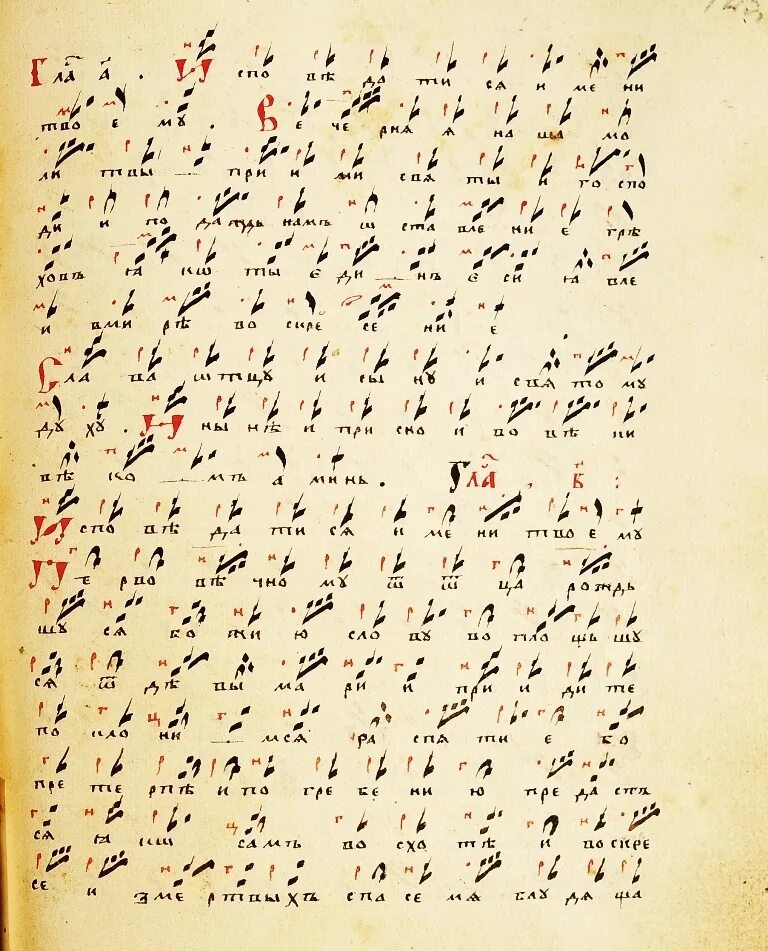 Гла҃ а҃ . И спо вѣ да ти ся и ме ни
тво е мꙋ . Ве че рния я на ша мо
ли твы при и ми свя ты и го спо
ди и по да ждь намъ ѡ ста вле ни е грѣ
ховъ ꙗ кѡ ты е ди нъ е си ꙗ вле
и вми рѣ во скре се ни е
Сла ва ѿтцꙋ и сы нꙋ и свя то мꙋ
дꙋ хꙋ . Н ны нѣ и при сно и во вѣ ки
вѣ ко мъ а минь . Гла҃ . в҃ :
И спо вѣ да ти ся и ме ни тво е мꙋ
П е рво вѣ чно мꙋ ѿ ѿ ца рождь
шꙋ ся бо жи ю сло вꙋ во пло щь шꙋ
ся ѿ дѣ вы ма ри и при и ди те
по кло ни мся ра спя ти е бо
пре те рпѣ и по гре бе ни ю пре да стъ
ся ꙗ кѡ самъ во схо тѣ и во скре
се и зме ртвы хъ спа се мя блꙋ дя ща